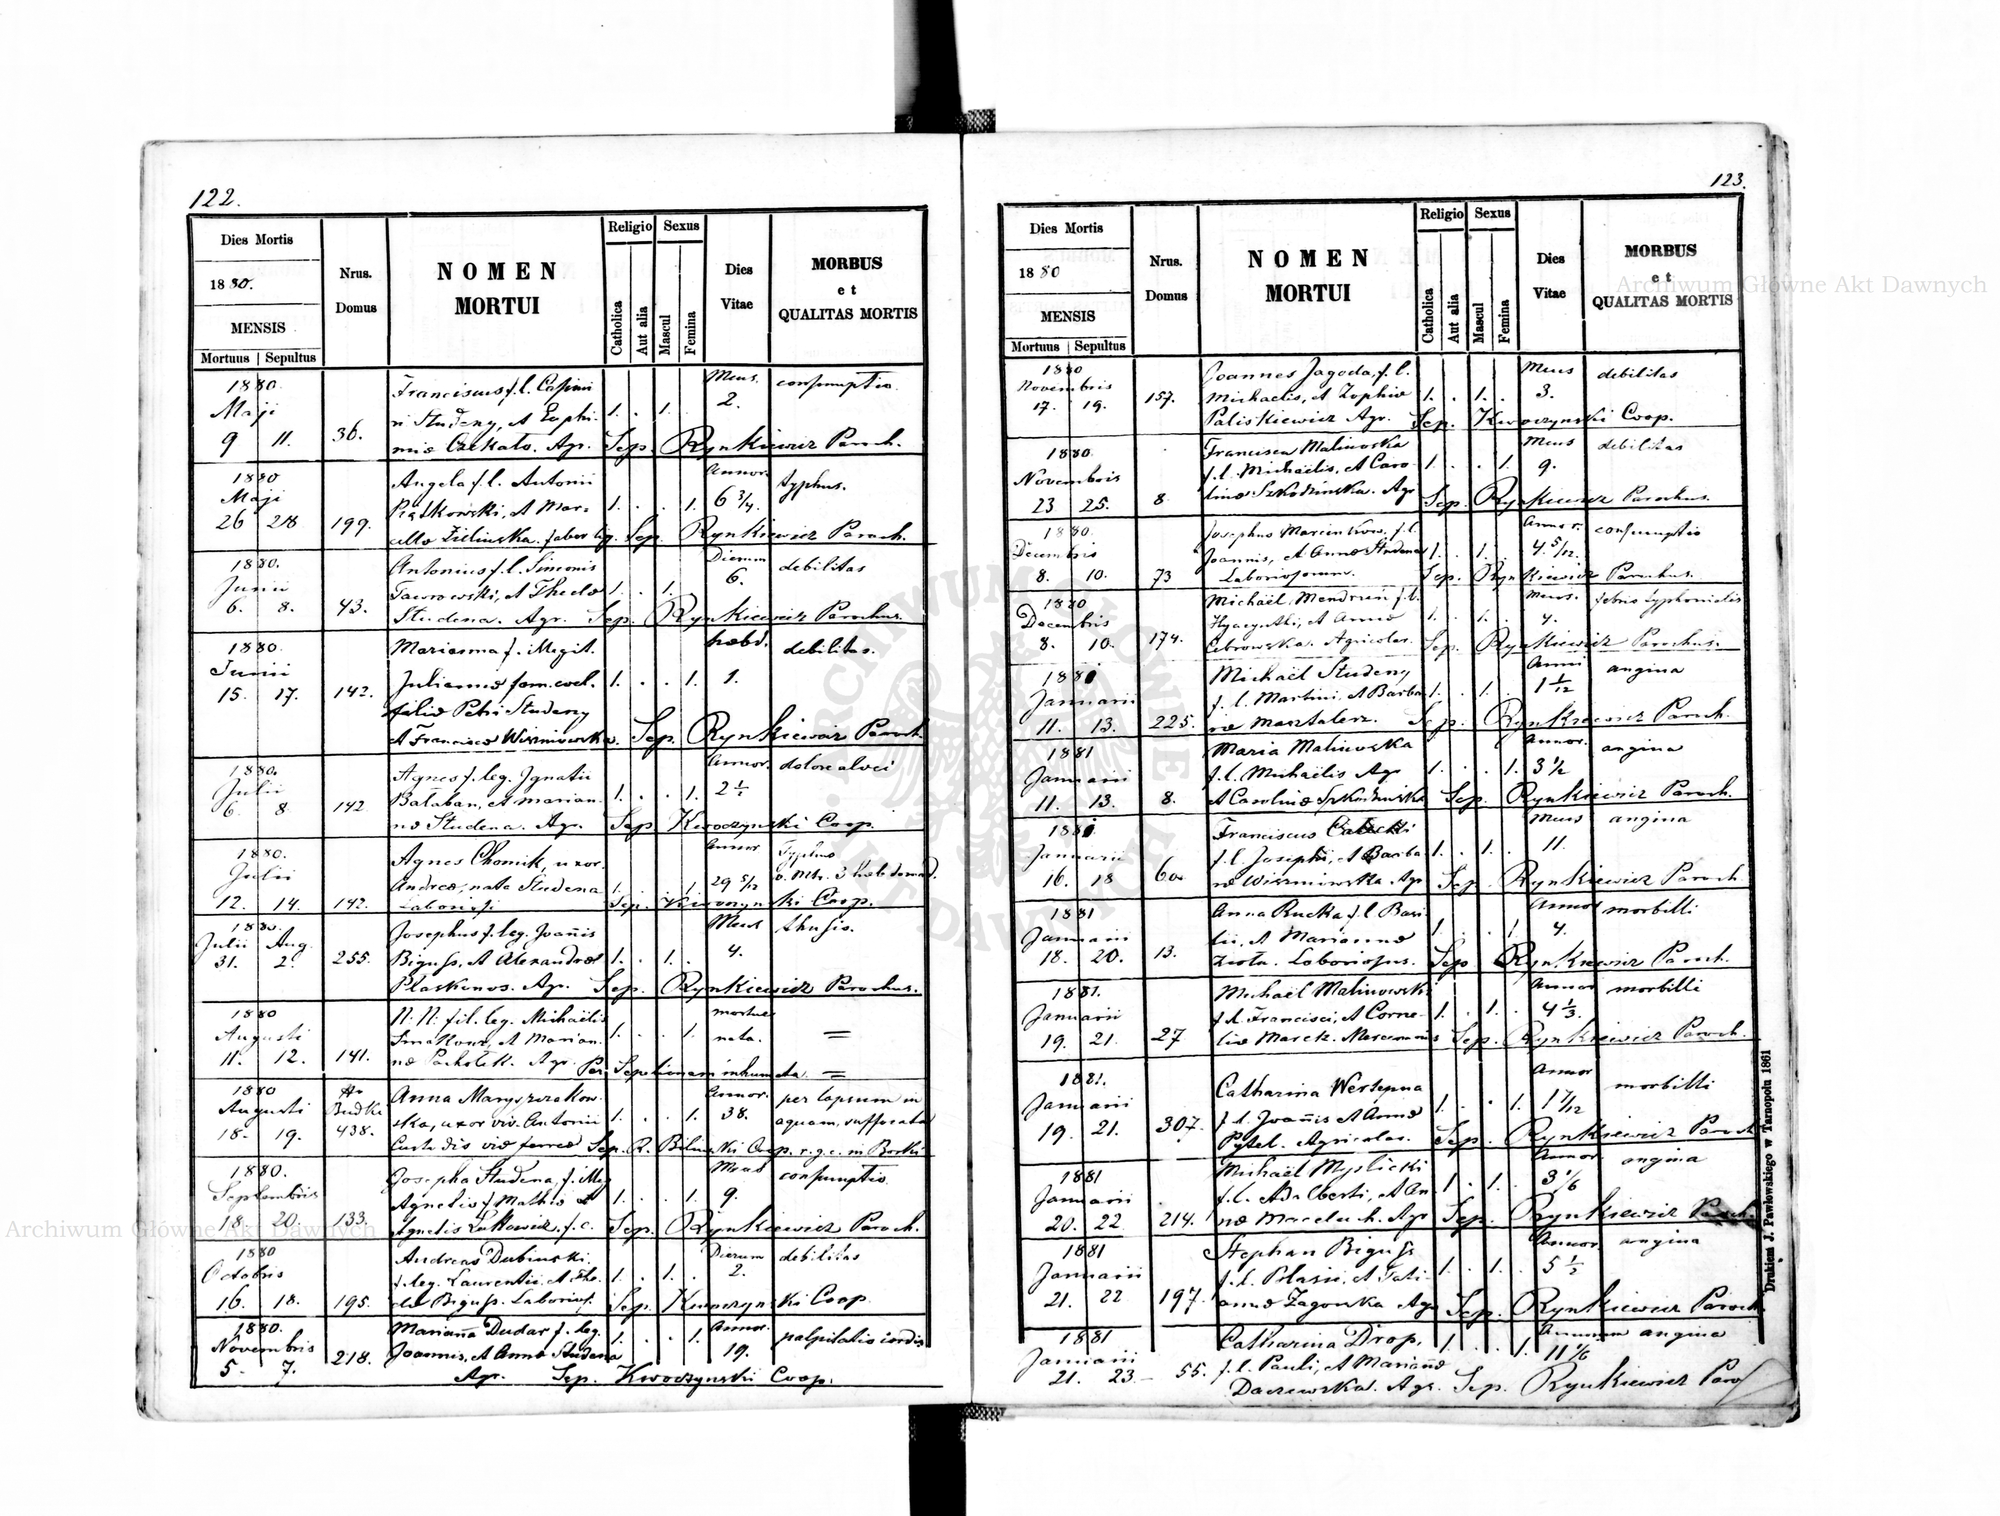 122.
Dies Mortis
1880.
MENSIS
Mortuus | Sepultus
Nrus. Domus
NOMEN MORTUI
Religio
Catholica
Aut alia
Sexus
Mascul
Femina
Dies Vitae
MORBUS et QUALITAS MORTIS
1880. Franciscus f. l. Casimi Mens. consumptio
Maji ri Studeny, et Euphe- 1. . 1. . 2.
9 11. 36. miae Czekalo. Agr. Sep. Rynkiewicz Paroch.
1880 Angela f. l. Antonii Annor. typhus.
Maji Piątkowski, et Mar- 1. . . 1. 6 3/4.
26 28 199. cellae Zielinska. faber lig. Sep. Rynkiewicz Paroch.
1880. Antonius f. l. Simeonis Dierum debilitas
Junii Tawrowski, et Theclae 1. . 1. . 6.
6. 8. 43. Studena. Agr. Sep. Rynkiewicz Parochus.
1880. Marianna f. illegit. hebd. debilitas.
Junii Juliannae fam. coel. 1. . . 1. 1.
15. 17. 142. filiae Petri Studeny
et Franciscae Wiszniowska. Sep. Rynkiewicz Paroch
1880. Agnes f. leg. Ignatii Annor. dolore alvei
Julii Bałaban, et Marian- 1. . . 1. 2 1/2
6. 8. 142 nae Studena. Agr. Sep. Kwoczynski Coop.
1880. Agnes Chomik, uxor. Annor Typhus
Julii Andreae, nata Studena 1. . . 1. 29 5/12 3 hebdomad.
12. 14. 142. Laboriosi Sep. Kwoczynski Coop.
1880. Josephus f. leg. Joañis Mens thusis.
Julii Aug. Biguss, et Alexandrae 1. . 1. . 4.
31. 2. 255. Plaskonos. Agr. Sep. Rynkiewicz Parochus.
1880 N: N: fil. leg. Michaëlis mortue
Augusti et Marian- 1. . . 1. nata. =
11. 12. 141. nae Pachołek. Agr. Per Sepelionem inhumata =
1880 Anna Maryszczakow- Annor. per lapsum in
Augusti Budki ska, uxor viv. Antonii 1. . . 1. 38. aquam, suffocata
18. 19. 438. Custodis viae ferreae Sep. R. Bilinski Coop. r. g. c. in Borki
1880. Josepha Studena, f. illeg Mens consumptio
Septembris Agnetis f. Mathiae et 1. . . 1. 9.
18. 20. 133. Agnetis Lutkowicz, f. c. Sep. Rynkiewicz Paroch.
1880 Andreas Dubinski. Dierum debilitas
Octobris f. leg. Laurentii, et The- 1. . 1. . 2.
16. 18. 195. clae Biguss. Laborios. Sep. Kwoczynski Coop
1880. Mariaña Dudar f. leg. Annor. palpitatio cordis
Novembris Joannis, et Annae Studena 1. . . 1. 19.
5. 7. 218. Agr. Sep. Kwoczynski Coop.
123.
Dies Mortis
1880
MENSIS
Mortuus | Sepultus
Nrus. Domus
NOMEN MORTUI
Religio
Catholica
Aut alia
Sexus
Mascul
Femina
Dies Vitae
MORBUS et QUALITAS MORTIS
1880 Joannes Jagoda, f. l. Mens debilitas
Novembris Michaelis, et Zophiae 1. . 1. . 3.
17. 19. 157. Paliskiewicz Agr. Sep. Kwoczynski Coop.
1880. Francisca Malinoska Mens debilitas
Novembris f. l. Michaëlis, et Caro- 1. . . 1. 9.
23 25. 8. linae Szkodzinska. Agr Sep. Rynkiewicz Parochus.
1880. Josephus Marcinkow, f. l. Annor. consumptio
Decembris Joannis, et Annae Studena 1. . 1. . 4. 5/12.
8. 10. 73 Laboriosorum. Sep. Rynkiewicz Parochus.
1880 Michaël Mendrun f. l. Mens. febris typhoidalis
Decembris Hyacynthi, et Annae 1. . 1. . 4.
8. 10. 174. Cebrowska. Agricolar. Sep. Rynkiewicz Parochus.
1881 Michaël Studeny Anni angina
Januarii f. l. Martini, et Barba- 1. . 1. . 1 1/12
11. 13. 225. rae Masztalerz. Sep. Rynkiewicz Paroch.
1881 Maria Malinoska Annor. angina
Januarii f. l. Michaëlis Agr 1. . . 1. 3 1/2
11. 13. 8. et Carolinae Szkodzinska Sep. Rynkiewicz Paroch.
1881. Franciscus Mens angina
Januarii f. l. Josephi, et Barba- 1. . 1. . 11.
16. 18 60. rae Wiszniowska Agr Sep. Rynkiewicz Paroch.
1881 Anna Rucka f. l. Basi- Annor morbilli
Januarii lii, et Mariannae 1. . . 1. 4.
18. 20. 13. Zlota. Laboriosus. Sep Rynkiewicz Paroch.
1881. Michaël Malinowski Annor morbilli
Januarii f. l. Francisci, et Corne- 1. . 1. . 4 1/3.
19. 21. 27 liae Marcz. Sep. Rynkiewicz Paroch.
1881. Catharina Wersepna Annor morbilli
Januarii f. l. Joañis et Annae 1. . . 1. 1 7/12
19. 21. 307. Pytel. Agricolar. Sep. Rynkiewicz Paroch
1881 Michaël Myslicki Annor. angina
Januarii f. l. Adalberti, et An- 1. . 1. . 3 1/6
20. 22 214. nae Marceluch. Agr Sep. Rynkiewicz Paroch.
1881 Stephan Biguss Annor. angina
Januarii f. l. Blasii, et Tati- 1. . 1. . 5 1/2
21. 22 197. annae Zagorska Agr Sep. Rynkiewicz Paroch.
1881 Catharina Drop, Annorum angina
Januarii f. l. Pauli, et Mariañae 1. . . 1. 11 1/6
21. 23 55. Daczewska. Agr. Sep. Rynkiewicz Paro
Drukiem J. Pawłowskiego w Tarnopolu 1861
Archiwum Główne Akt Dawnych
Archiwum Główne Akt Dawnych
ARCHIWUM GŁÓWNE AKT DAWNYCH